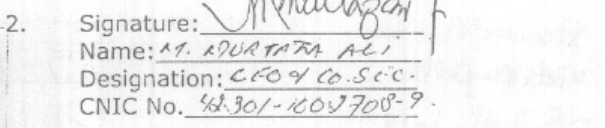 2. Signature:
Name: M. MURTAZA ALI
Designation: CFO & CO. SEC
CNIC No. 42301-1